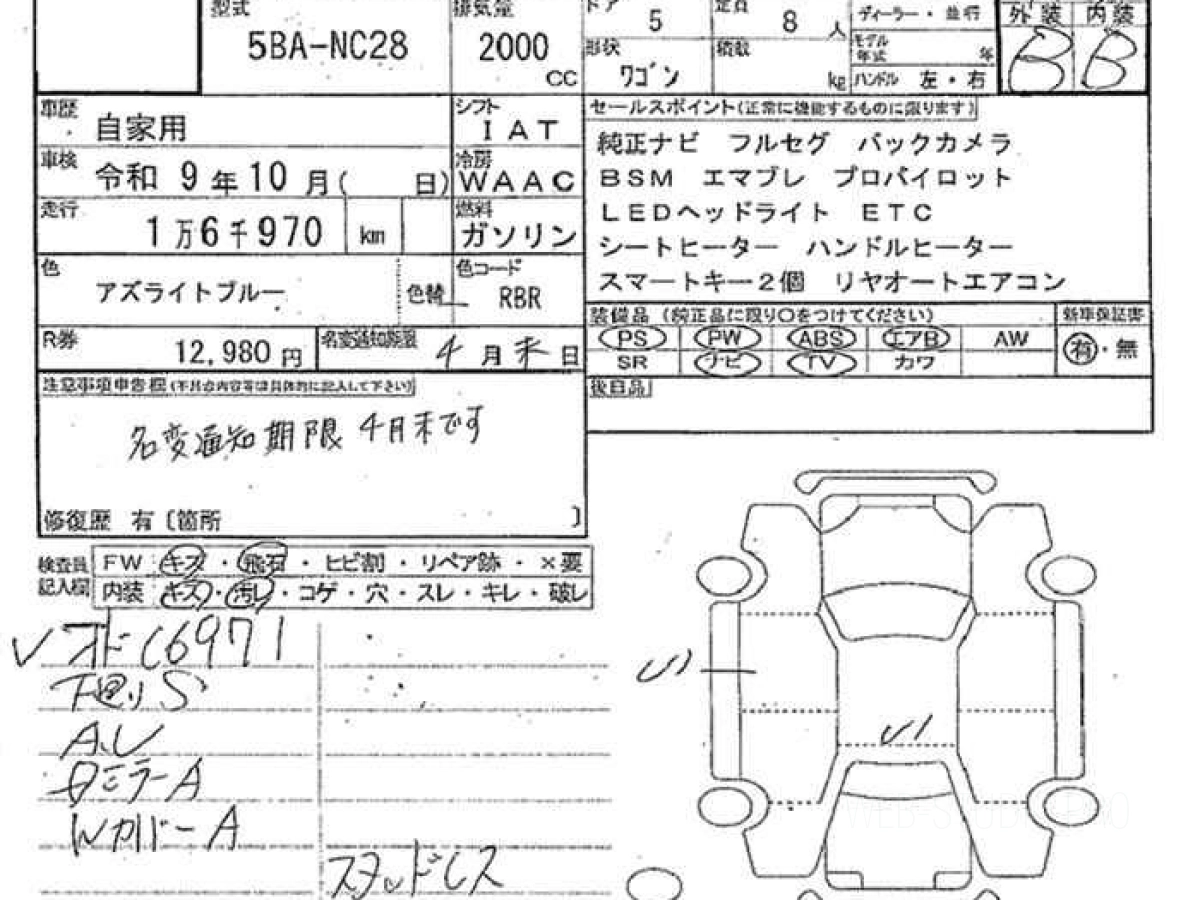 型式 5BA-NC28
排気量 2000 CC
ドア 5
定員 8 人
形状 ワゴン
積載 kg
ディーラー・並行
モデル年式 年
ハンドル 左・右
外装 内装
B B
車歴 自家用
シフト IAT
車検 令和 9年10月( 日)
冷房 WAAC
走行 1万6千970 km
燃料 ガソリン
色 アズライトブルー
色替
色コード RBR
R券 12,980 円
名変通知期限 4月末日
セールスポイント(正常に機能するものに限ります)
純正ナビ フルセグ バックカメラ
BSM エマブレ プロパイロット
LEDヘッドライト ETC
シートヒーター ハンドルヒーター
スマートキー2個 リヤオートエアコン
装備品 (純正品に限り○をつけてください)
新車保証書
PS PW ABS エアB AW
SR ナビ TV カワ
有・無
後日品
注意事項申告欄(不具合内容等は具体的に記入して下さい)
名変通知期限 4月末です
修復歴 有〔箇所 〕
検査員記入欄
FW キズ・飛石・ヒビ割・リペア跡・×要
内装 キズ・汚レ・コゲ・穴・スレ・キレ・破レ
下廻りS
AU
ミラーA
WカバーA
スタッドレス
U1
U1